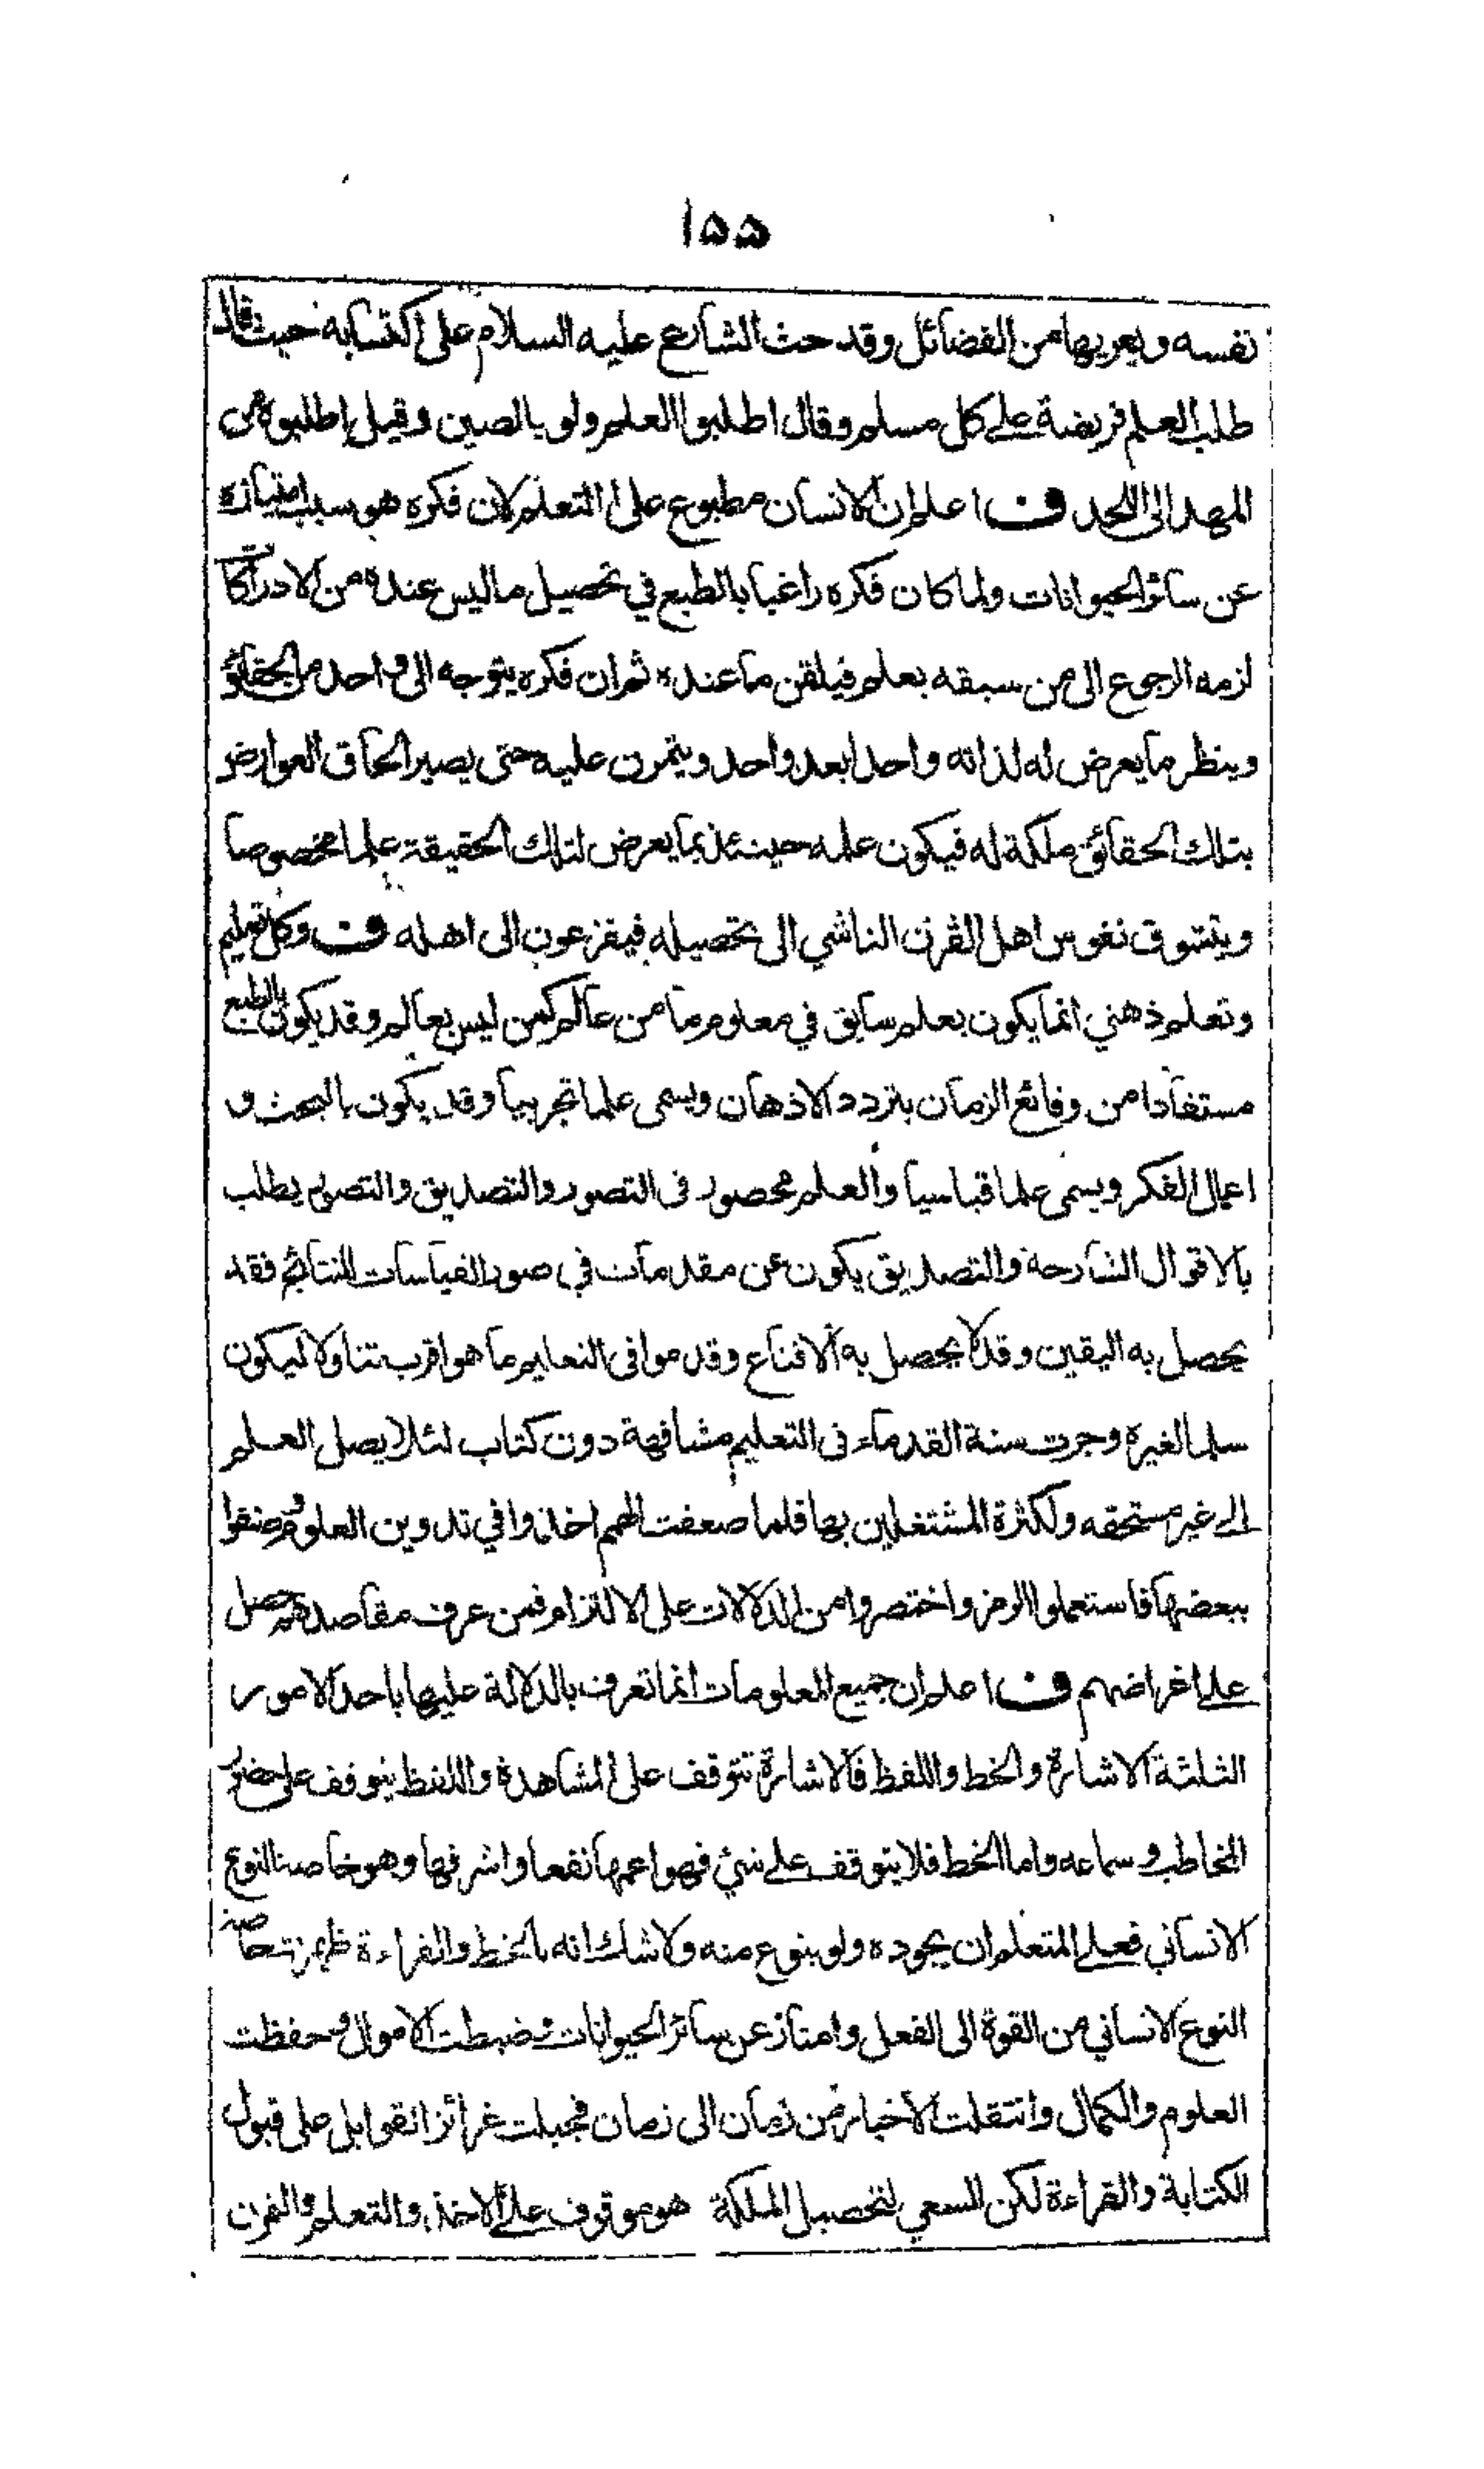 ١٥٥
نفسه ويعريها من الفضائل وقد حث الشارع عليه السلام على اكتسابه حيث قال
طلب العلم فريضة على كل مسلم وقال اطلبوا العلم ولو بالصين وقيل اطلبوه من
المهد الى اللحد ف اعلم ان الانسان مطبوع على التعلم لان فكره هو سبب امتيازه
عن سائر الحيوانات ولما كان فكره راغبا بالطبع في تحصيل ما ليس عنده من الادراكات
لزمه الرجوع الى من سبقه بعلم فيلقن ما عنده ثم ان فكره يتوجه الى واحد من الحقائق
وينظر ما يعرض له لذاته واحدا بعد واحد ويتمرن عليه حتى يصير الحاق العوارض
بتلك الحقائق ملكة له فيكون علمه حينئذ بما يعرض لتلك الحقيقة علما مخصوصا
ويتشوق نفوس اهل القرن الناشي الى تحصيله فيفزعون الى اهله ف وكل تعليم
وتعلم ذهني انما يكون بعلم سابق في معلوم ما من عالم لمن ليس بعالم وقد يكون بالطبع
مستفادا من وقائع الزمان بتردد الاذهان ويسمى علما تجريبيا وقد يكون بالبحث و
اعمال الفكر ويسمى علما قياسيا والعلم محصور في التصور والتصديق والتصور يطلب
بالاقوال الشارحة والتصديق يكون عن مقدمات في صور القياسات للنتائج فقد
يحصل به اليقين وقد لا يحصل به الا قناع وقدموا في التعليم ما هو اقرب تناولا ليكون
سلما لغيره وجرت سنة القدماء في التعليم مشافهة دون كتاب لئلا يصل العلم
الى غير مستحقه ولكثرة المشتغلين بها فلما ضعفت الهمم اخذوا في تدوين العلوم وضنوا
ببعضها فاستعملوا الرمز واختصروا من الدلالات على الالتزام فمن عرف مقاصدهم حصل
على اغراضهم ف اعلم ان جميع المعلومات انما تعرف بالدلالة عليها باحد الامور
الثلثة الاشارة والخط واللفظ فالاشارة تتوقف على المشاهدة واللفظ يتوقف على حضور
المخاطب وسماعه واما الخط فلا يتوقف على شئ فهو اعمها نفعا واشرفها وهو خاصة النوع
الانساني فعلى المتعلم ان يجوده ولو بنوع منه ولا شك انه بالخط والقراءة ظهرت خاصة
النوع الانساني من القوة الى الفعل وامتاز عن سائر الحيوانات وضبطت الاموال وحفظت
العلوم والكمال وانتقلت الاخبار من زمان الى زمان فجبلت غرائز القوابل على قبول
الكتابة والقراءة لكن السعي لتحصيل الملكة هو موقوف على الاخذ والتعلم والتمرن